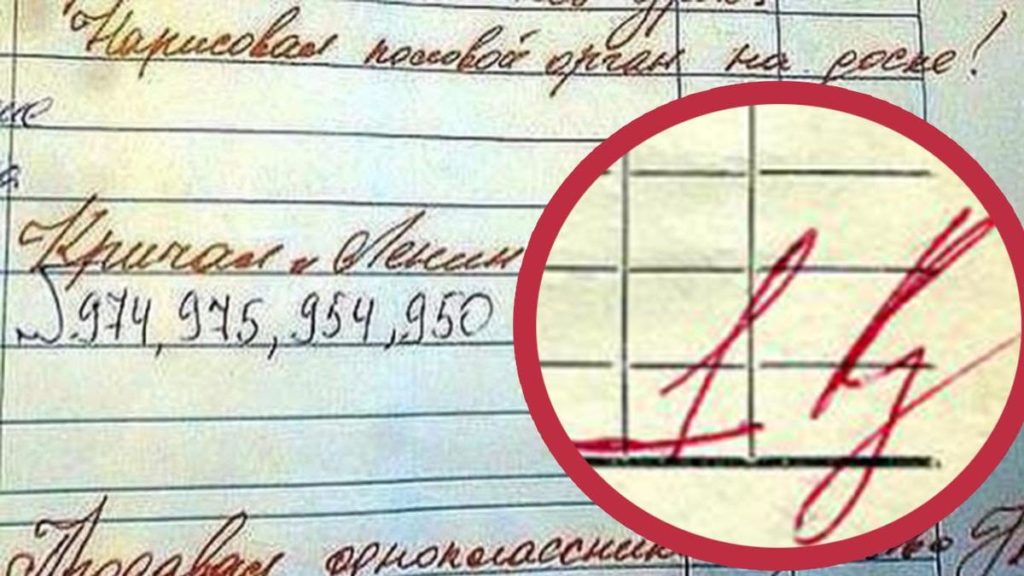 Нарисовал половой орган на доске!
Кричал „ Ленин
№974, 975, 954, 950
1
Продавал одноклассник